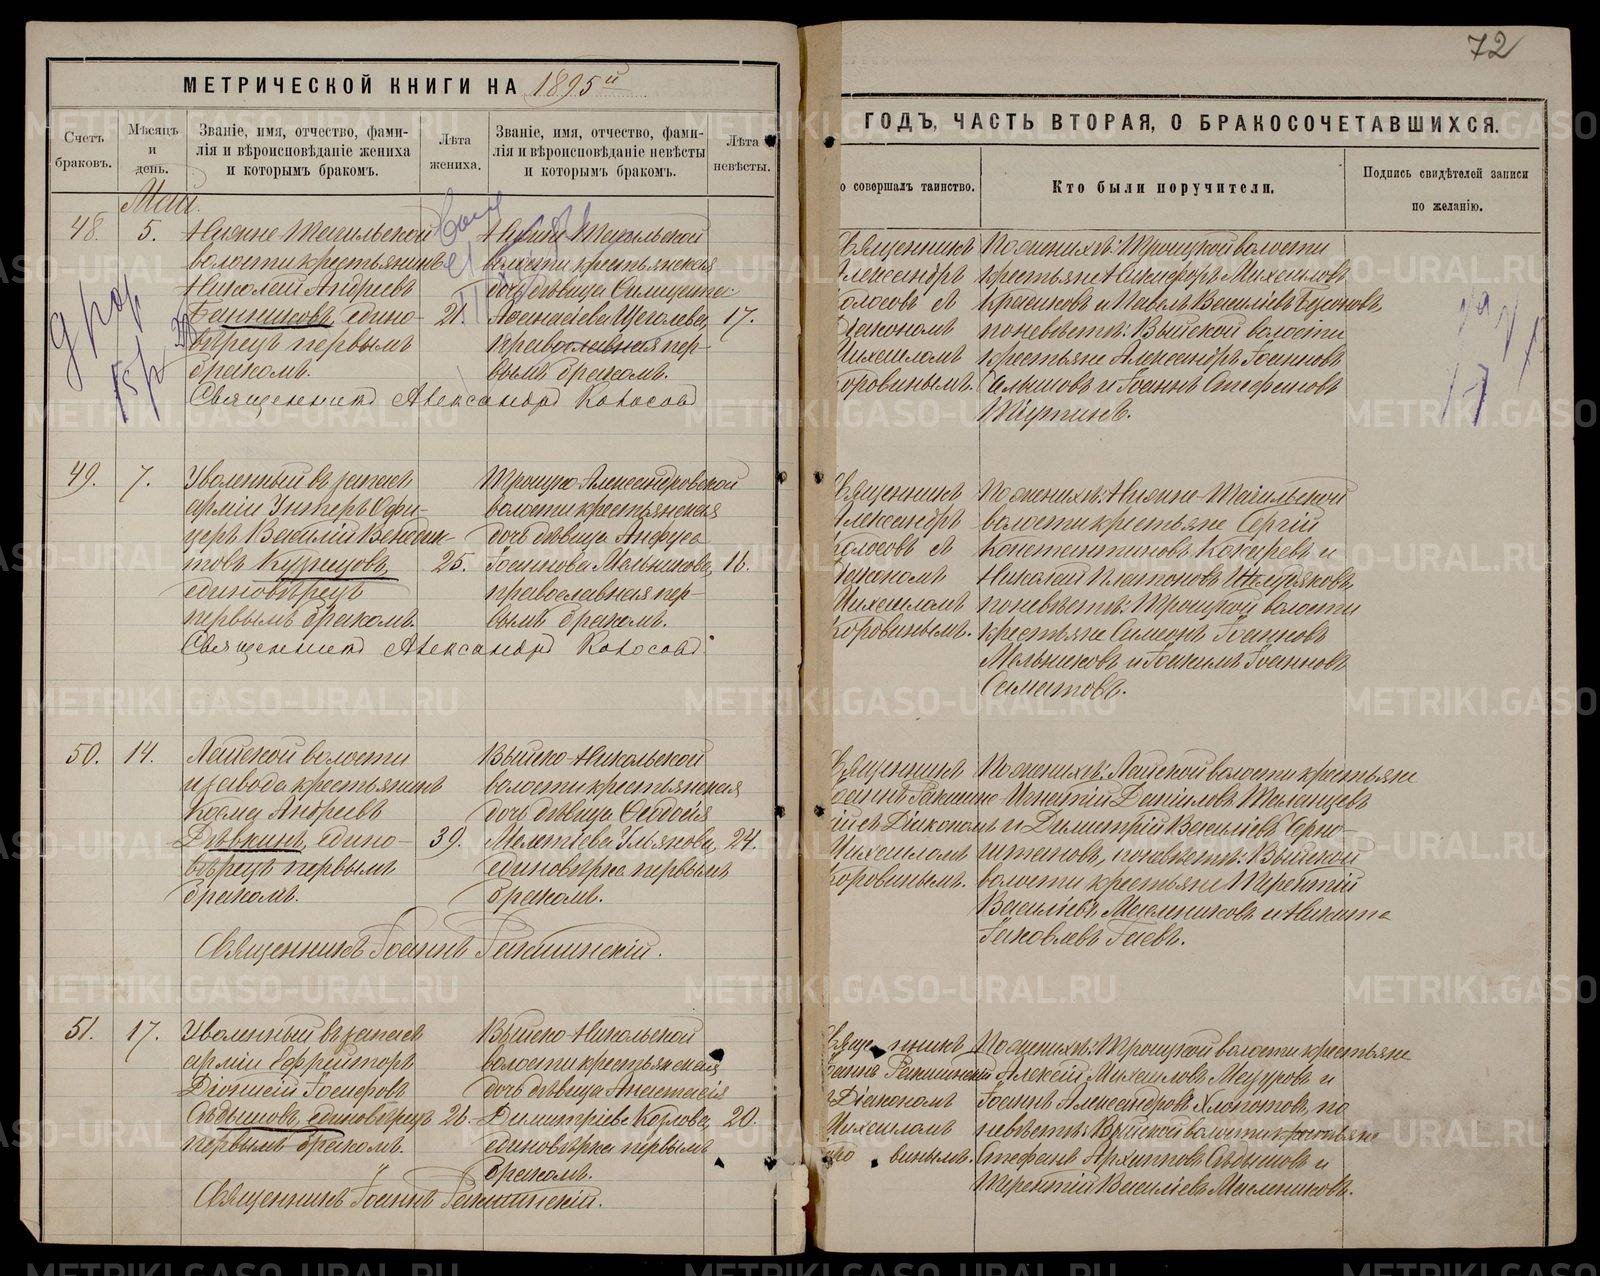 72
МЕТРИЧЕСКОЙ КНИГИ НА 1895й
ГОДЪ, ЧАСТЬ ВТОРАЯ, О БРАКОСОЧЕТАВШИХСЯ.
Счетъ браковъ.
Мѣсяцъ и день.
Званіе, имя, отчество, фами-
лія и вѣроисповѣданіе жениха
и которымъ бракомъ.
Лѣта жениха.
Званіе, имя, отчество, фами-
лія и вѣроисповѣданіе невѣсты
и которымъ бракомъ.
Лѣта невѣсты.
о совершалъ таинство.
Кто были поручители.
Подпись свидѣтелей записи
по желанію.
Май.
48.
5.
Нижне Тагильской
волости крестьянинъ
Николай Андреевъ
Банниковъ, едино-
вѣрецъ первымъ
бракомъ.
21.
Нижне Тагильской
волости крестьянская
дочь дѣвица
Аѳанасіева Щеголева,
православная пер-
вымъ бракомъ.
17.
Священникъ Александръ Колосовъ
Священникъ
Александръ
Колосовъ съ
Діакономъ
Михаиломъ
Коровинымъ.
По женихѣ: Троицкой волости
крестьяне Никифоръ Михаиловъ
Красиковъ и Павелъ Василіевъ
по невѣстѣ: Выйской волости
крестьяне Александръ Іоанновъ
и Іоаннъ Стефановъ
49.
7.
Уволенный въ запасъ
арміи Унтеръ Офи-
церъ Василій Венедик-
товъ Кузнецовъ,
единовѣрецъ
первымъ бракомъ.
25.
Троицко Александровской
волости крестьянская
дочь дѣвица Анфуса
Іоаннова Мельникова,
православная пер-
вымъ бракомъ.
16.
Священникъ Александръ Колосовъ
Священникъ
Александръ
Колосовъ съ
Діакономъ
Михаиломъ
Коровинымъ.
По женихѣ: Нижне-Тагильской
волости крестьяне Сергій
Константиновъ и
Николай Платоновъ
по невѣстѣ: Троицкой волости
крестьяне Симеонъ Іоанновъ
Мельниковъ и Іоакимъ Іоанновъ
50.
14.
Лайской волости
и завода крестьянинъ
Козма Андреевъ
Дѣвкинъ, едино-
вѣрецъ первымъ
бракомъ.
39.
Выйско-Никольской
волости крестьянская
дочь дѣвица Ѳеодосія
Мелетіева Ульянова,
единовѣрка первымъ
бракомъ.
24.
Священникъ Іоаннъ
Священникъ
Іоаннъ
съ Діакономъ
Михаиломъ
Коровинымъ.
По женихѣ: Лайской волости крестьяне
Игнатій Даніиловъ Таланцевъ
и Димитрій Василіевъ Черно-
по невѣстѣ: Выйской
волости крестьяне Терентій
Василіевъ Масленниковъ и Никита
Іаковлевъ Гаевъ.
51.
17.
Уволенный въ запасъ
арміи Ефрейторъ
Діонисій Іосифовъ
Сѣдышовъ, единовѣрецъ
первымъ бракомъ.
26.
Выйско-Никольской
волости крестьянская
дочь дѣвица Анастасія
Димитріева Козлова,
единовѣрка первымъ
бракомъ.
20.
Священникъ Іоаннъ
Священникъ
Іоаннъ
съ Діакономъ
Михаиломъ
Коровинымъ.
По женихѣ: Троицкой волости крестьяне
Алексій Михаиловъ Мазуровъ и
Іоаннъ Александровъ Хлопотовъ, по
невѣстѣ: Выйской волости крестьяне
Стефанъ Архиповъ Сѣдышовъ и
Терентій Василіевъ Маслениковъ.
METRIKI.GASO-URAL.RU